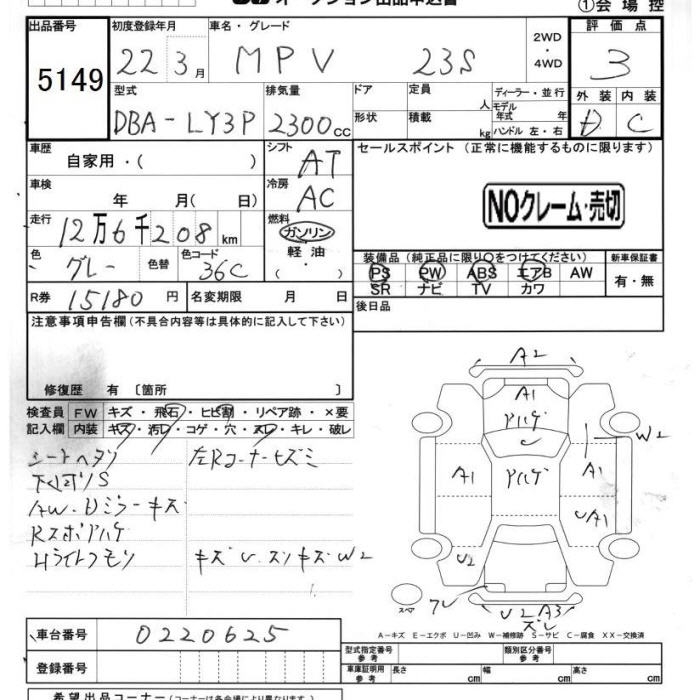 オークション出品申込書 ①会場控
出品番号 初度登録年月 車名・グレード 2WD・4WD 評価点
5149 22 3月 MPV 23S 3
型式 排気量 ドア 定員 人 ディーラー・並行 外装 内装
DBA-LY3P 2300cc 形状 積載 kg モデル年式 年 ハンドル 左・右 D C
車歴 シフト セールスポイント (正常に機能するものに限ります)
自家用・( ) AT
車検 冷房 NOクレーム・売切
年 月( 日) AC
走行 燃料
12万6千208km ガソリン
軽油・
( )
色 グレー 色替 色コード 36C
装備品 (純正品に限り○をつけてください) 新車保証書
PS PW ABS エアB AW 有・無
SR ナビ TV カワ
R券 15180円 名変期限 月 日 後日品
注意事項申告欄 (不具合内容等は具体的に記入して下さい)
修復歴 有 〔箇所 〕
検査員 FW キズ・飛石・ヒビ割・リペア跡・×要
記入欄 内装 キズ・汚レ・コゲ・穴・スレ・キレ・破レ
シートヘタリ 左Rコーナーヒズミ
下廻りS
AW.Dミラーキズ
Rスポアハゲ
Hライトクモリ キズ U.スリキズ W2
A2
A1
アハゲ
W2
A1 アハゲ A1
UA1
U2
スペア
U2 A3
ズレ
A－キズ E－エクボ U－凹み W－補修跡 S－サビ C－腐食 XX－交換済
車台番号 0220625
登録番号
型式指定番号 参考 類別区分番号 参考
車庫証明用 参考 長さ cm 幅 cm 高さ cm
希望出品コーナー (コーナーは各会場により異なります。)